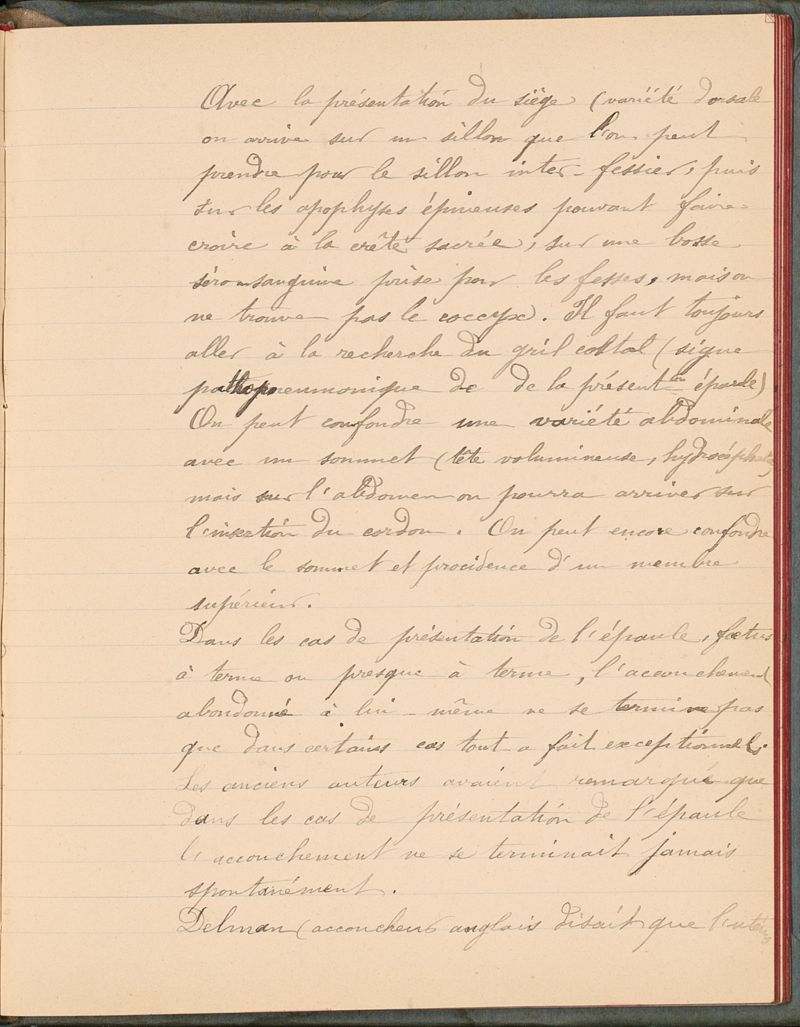 Avec la présentation du siège (variété dorsale
on arrive sur un sillon que l'on peut
prendre pour le sillon inter-fessier, puis
sur les apophyses épineuses pouvant faire
croire à la crête sacrée, sur une bosse
séro-sanguine prise pour les fesses, mais on
ne trouve pas le coccyx. Il faut toujours
aller à la recherche du gril costal (signe
pathopneumonique de de la présent.tion épaule)
On peut confondre une variété abdominale
avec un sommet (tête volumineuse, hydrocéphale)
mais sur l'abdomen on pourra arriver sur
l'insertion du cordon. On peut encore confondre
avec le sommet et procidence d'un membre
supérieur.
Dans les cas de présentation de l'épaule, fœtus
à terme ou presque à terme, l'accouchement
abondonné à lui-même ne se termine pas
que dans certains cas tout a fait exceptionnels.
Les anciens auteurs avaient remarqué que
dans les cas de présentation de l'épaule
l'accouchement ne se terminait jamais
spontanément.
Delman (accoucheur anglais disait que l'utérus